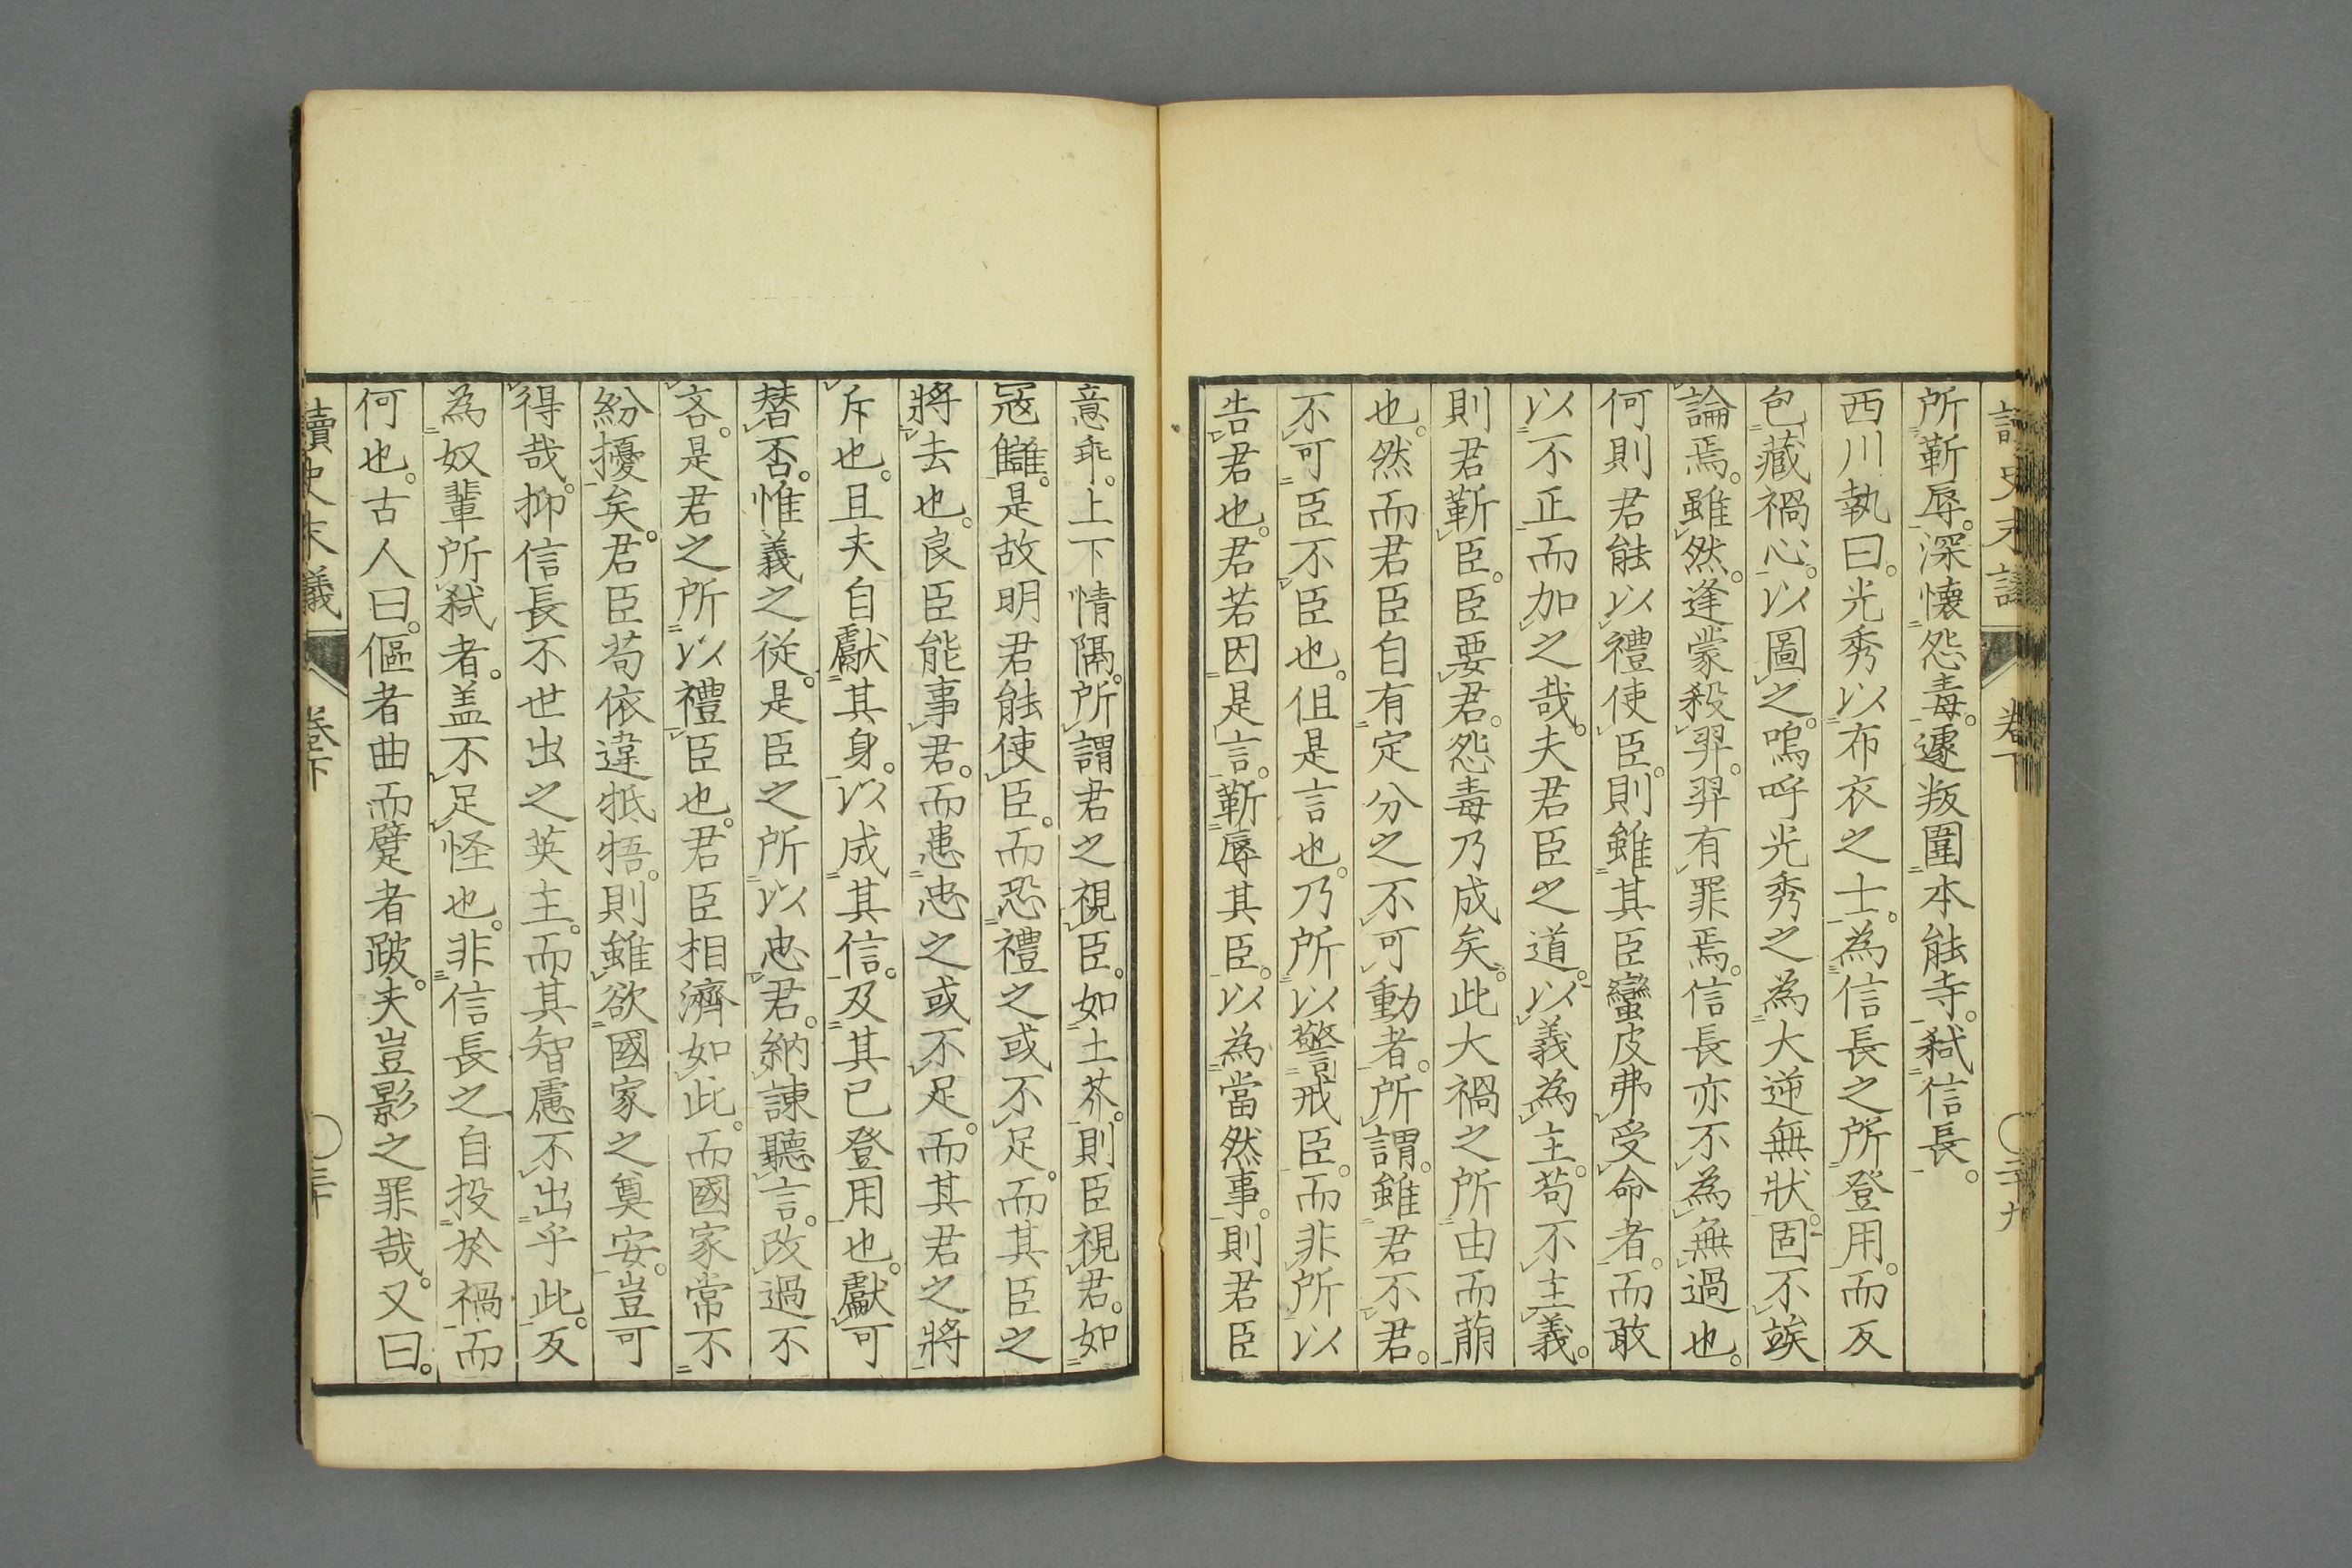 所靳辱。深懷怨毒。遽叛圍本能寺。弑信長。
西川執曰。光秀以布衣之士。為信長之所登用。而反
包藏禍心。以圖之。嗚呼光秀之為大逆無狀。固不竢
論焉。雖然。逢蒙殺羿。羿有罪焉。信長亦不為無過也。
何則君能以禮使臣。則雖其臣蠻皮弗受命者。而敢
以不正而加之哉。夫君臣之道。以義為主。苟不主義。
則君靳臣。臣要君。怨毒乃成矣。此大禍之所由而萠
也。然而君臣自有定分之不可動者。所謂。雖君不君。
不可臣不臣也。但是言也。乃所以警戒臣。而非所以
告君也。君若因是言。靳辱其臣。以為當然事。則君臣
意乖。上下情隔。所謂君之視臣。如土芥。則臣視君。如
寇讎。是故明君能使臣。而恐禮之或不足。而其臣之
將去也。良臣能事君。而患忠之或不足。而其君之將
斥也。且夫自獻其身。以成其信。及其已登用也。獻可
替否。惟義之從。是臣之所以忠君。納諫聽言。改過不
吝。是君之所以禮臣也。君臣相濟如此。而國家常不
紛擾矣。君臣苟依違牴牾。則雖欲國家之奠安。豈可
得哉。抑信長不世出之英主。而其智慮不出乎此。反
為奴輩所弑者。盖不足怪也。非信長之自投於禍而
何也。古人曰。傴者曲而躄者跛。夫豈影之罪哉。又曰。
讀史末議 卷下 三十